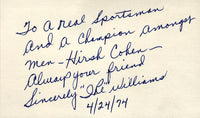 To A real Sportsman
and a Champion amongst
men - Hirsh Cohen -
Always your friend
Sincerely "Ike" Williams
4/24/74